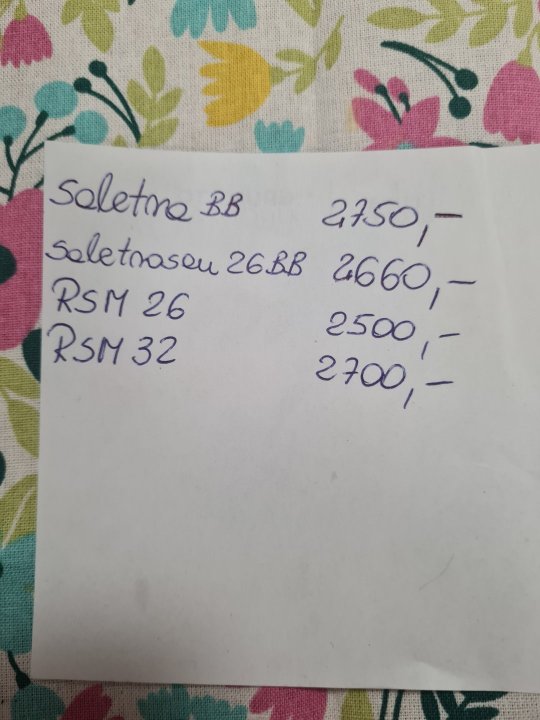 Saletra BB 2750,-
Saletrosan 26 BB 2660,-
RSM 26 2500,-
RSM 32 2700,-